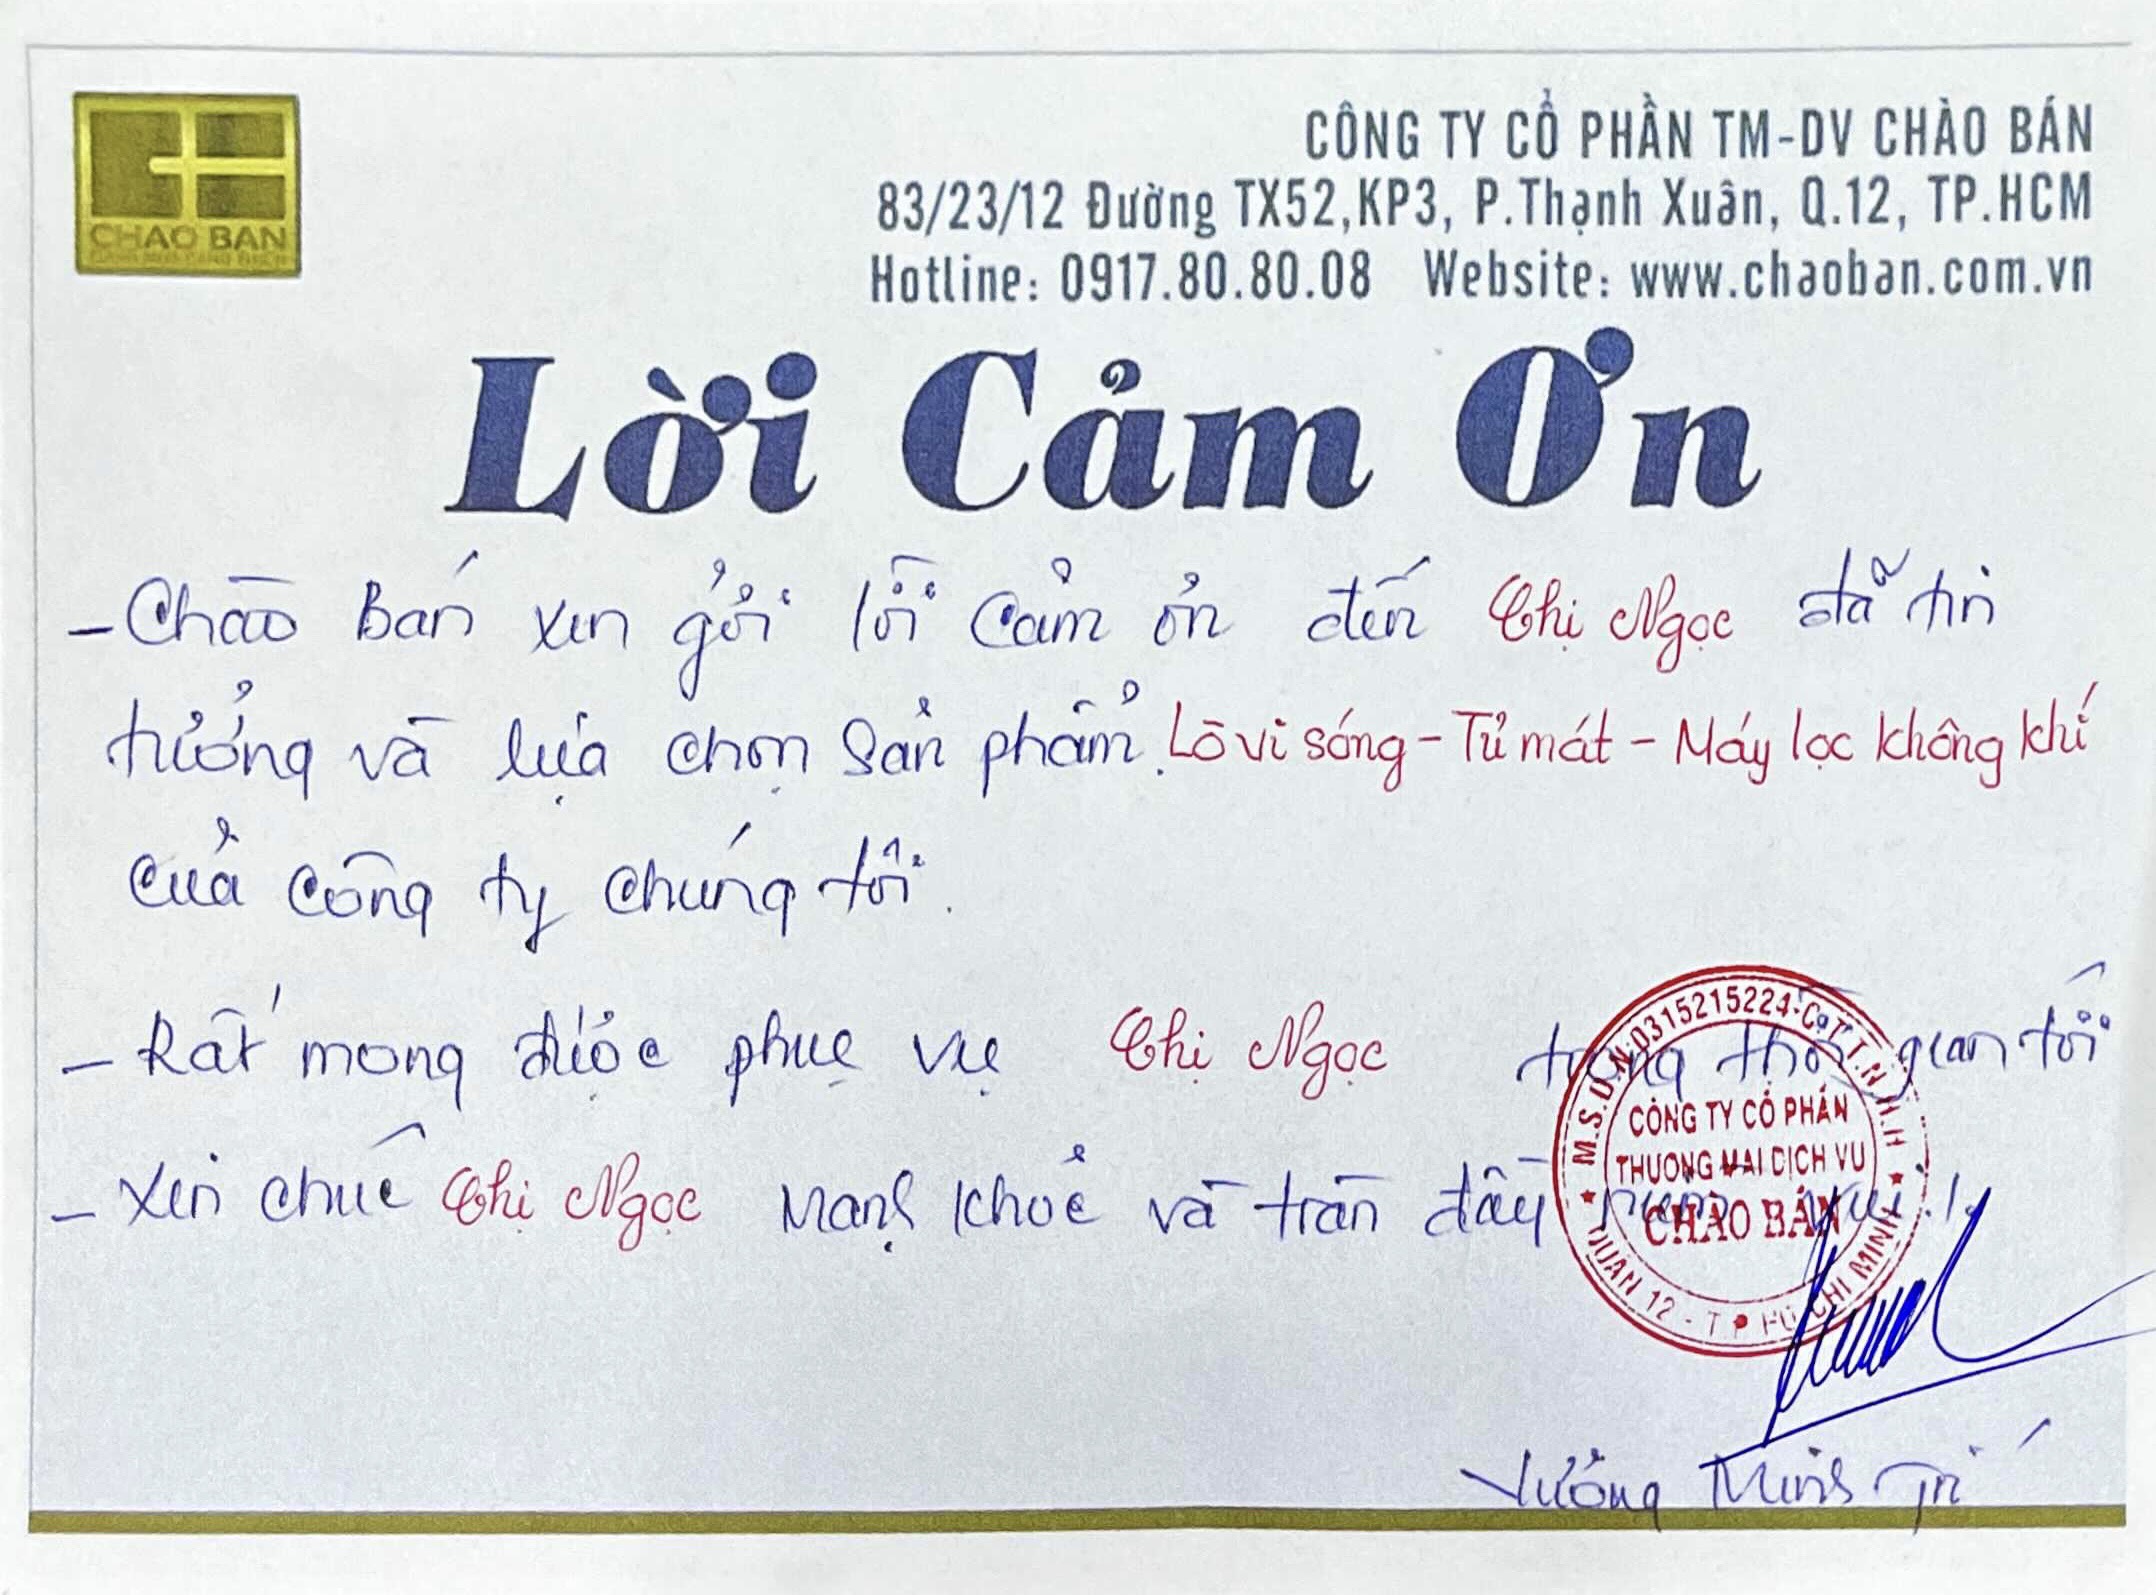 CHAO BAN
CÔNG TY CỔ PHẦN TM-DV CHÀO BÁN
83/23/12 Đường TX52,KP3, P.Thạnh Xuân, Q.12, TP.HCM
Hotline: 0917.80.80.08 Website: www.chaoban.com.vn
Lời Cảm Ơn
- Chào Bán xin gởi lời cảm ơn đến Chị Ngọc đã tin
tưởng và lựa chọn sản phẩm. Lò vi sóng - Tủ mát - Máy lọc không khí
của công ty chúng tôi.
- Rất mong được phục vụ Chị Ngọc trong thời gian tới
- Xin chúc Chị Ngọc mạnh khoẻ và tràn đầy niềm vui!.
M.S.D.N:0315215224-C.T.T.N.H.H
CÔNG TY CỔ PHẦN
THƯƠNG MẠI DỊCH VỤ
CHÀO BÁN
QUẬN 12 - TP HỒ CHÍ MINH
Vương Minh Trí